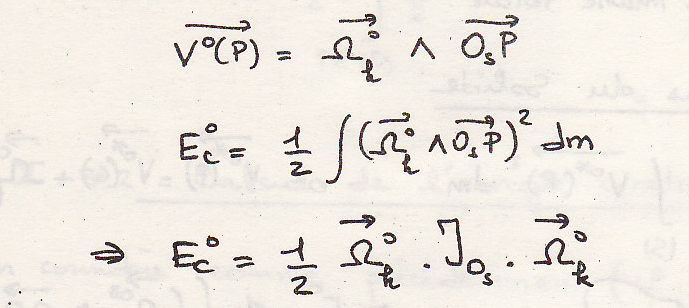 V⁰(P) = Ω⁰ₖ ∧ OₛP
E꜀⁰ = 1/2 ∫ (Ω⁰ₖ ∧ OₛP)² dm
⇒ E꜀⁰ = 1/2 Ω⁰ₖ . J_Oₛ . Ω⁰ₖ